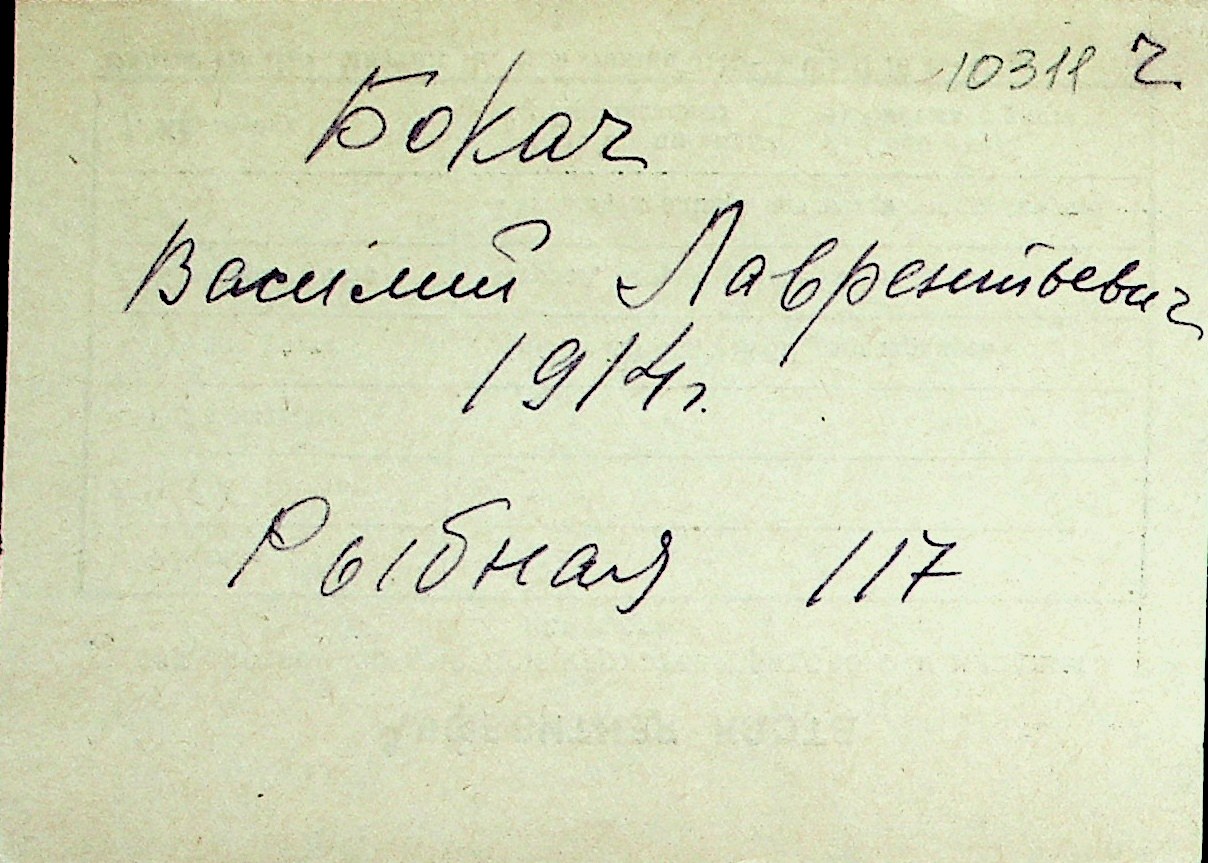 10311 ч
Бокач
Василий Лаврентьевич
1914г.
Рыбная 117